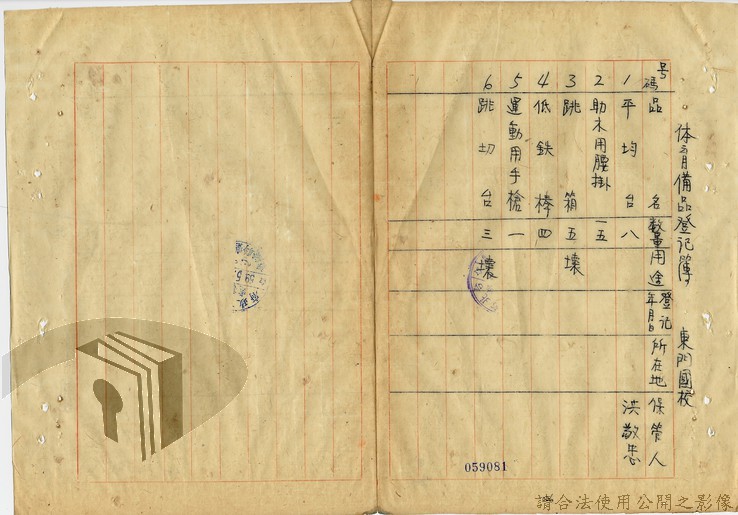 体育備品登記簿 東門國校
号碼 品名 數量 用途 登記年月日 所在地 保管人
1 平均台 八 洪敬忠
2 助木用腰掛 一五
3 跳箱 五 壞
4 低鉄棒 四
5 運動用手槍 一
6 跳切台 三 壞
059081
請合法使用公開之影像